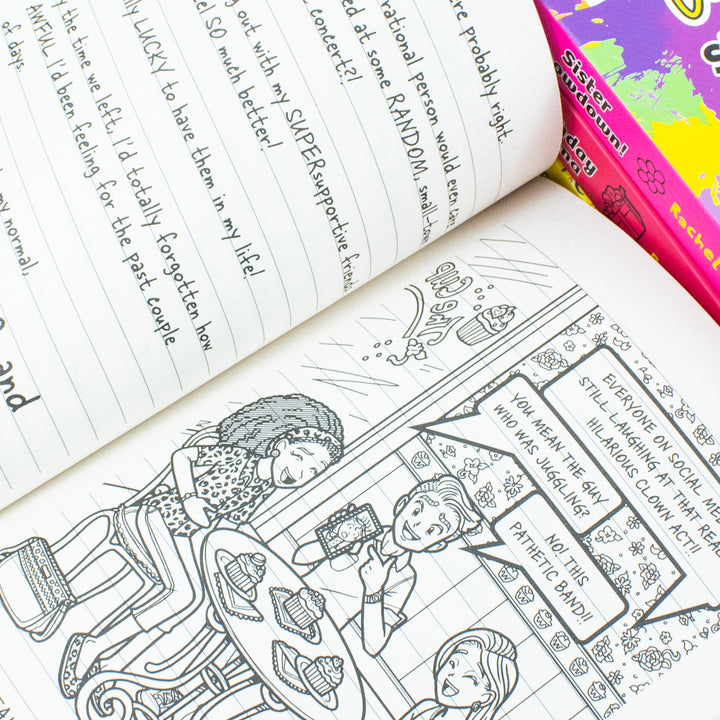 probably right.
rational person would even care
at some RANDOM, small-town
concert?!
out with my SUPERsupportive friends
SO much better!
LUCKY to have them in my life!
the time we left, I'd totally forgotten how
AWFUL I'd been feeling for the past couple
of days.
my normal,
and
EVERYONE ON SOCIAL
STILL LAUGHING AT THAT
HILARIOUS CLOWN ACT!!
YOU MEAN THE GUY
WHO WAS JUGGLING?
NO! THIS
PATHETIC BAND!!
Sister
Rachel